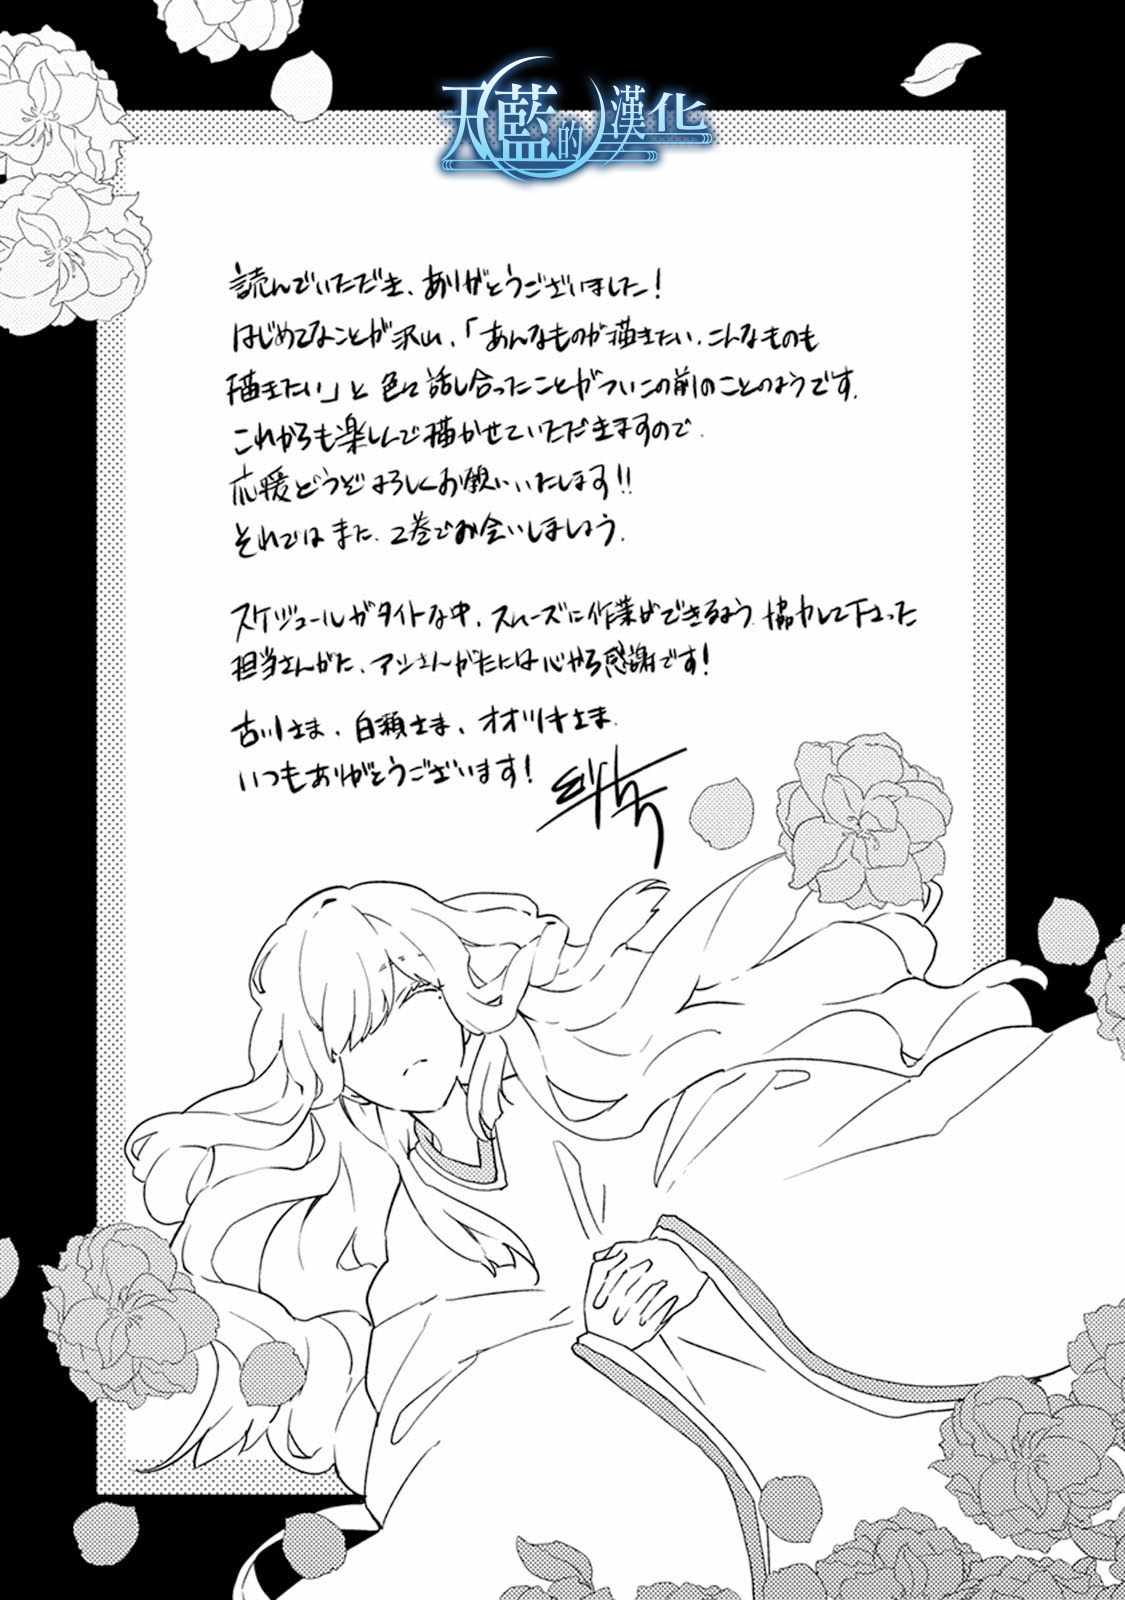 天藍的漢化
読んでいただき、ありがとうございました!
はじめてなことが沢山、「あんなものが描きたい、こんなものも
描きたい」と色々話し合ったことがついこの前のことのようです。
これからも楽しんで描かせていただきますので、
応援どうぞよろしくお願いいたします!!
それではまた、2巻でお会いしましょう。
スケジュールがタイトな中、スムーズに作業ができるよう協力して下さった
担当さんがた、アシさんがたには心から感謝です!
古川さま、白瀬さま、オオツキさま、
いつもありがとうございます!